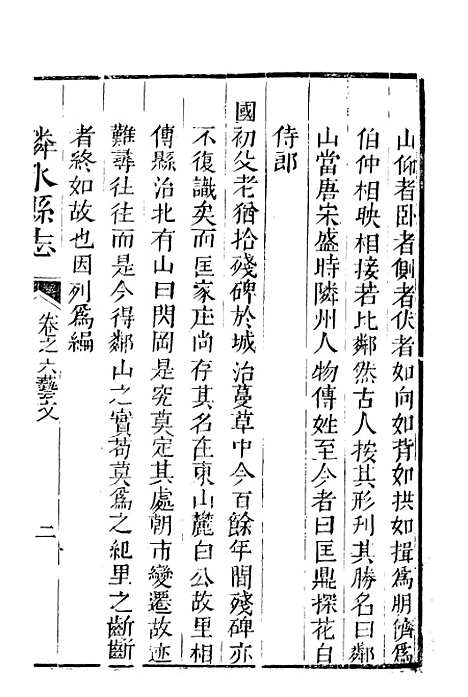 山仰者卧者側者伏者如向如背如拱如揖爲朋儕爲
伯仲相映相接若比鄰然古人按其形刋其勝名曰鄰
山當唐宋盛時隣州人物傳姓至今者曰匡鼎探花白
侍郎
國初父老猶拾殘碑於城治蔓草中今百餘年間殘碑亦
不復識矣而匡家庄尚存其名在東山麓白公故里相
傳縣治北有山曰閃岡是究莫定其處朝市變遷故迹
難尋往往而是今得鄰山之實苟莫爲之紀里之斷斷
者終如故也因列爲編
鄰水縣志
卷之六藝文
二